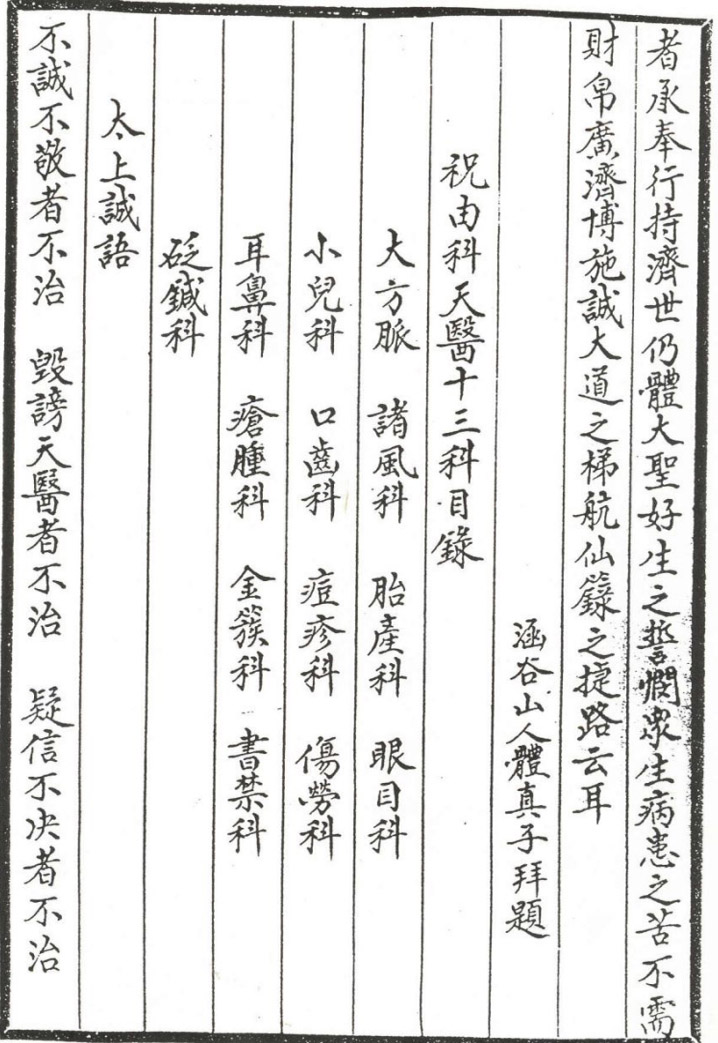 者承奉行持濟世仍體大聖好生之誓憫衆生病患之苦不需
財帛廣濟博施誠大道之梯航仙籙之捷路云耳
涵谷山人體真子拜題
祝由科天醫十三科目錄
大方脈 諸風科 胎產科 眼目科
小兒科 口齒科 痘疹科 傷勞科
耳鼻科 瘡腫科 金簇科 書禁科
砭鍼科
太上誠語
不誠不敬者不治 毀謗天醫者不治 疑信不決者不治